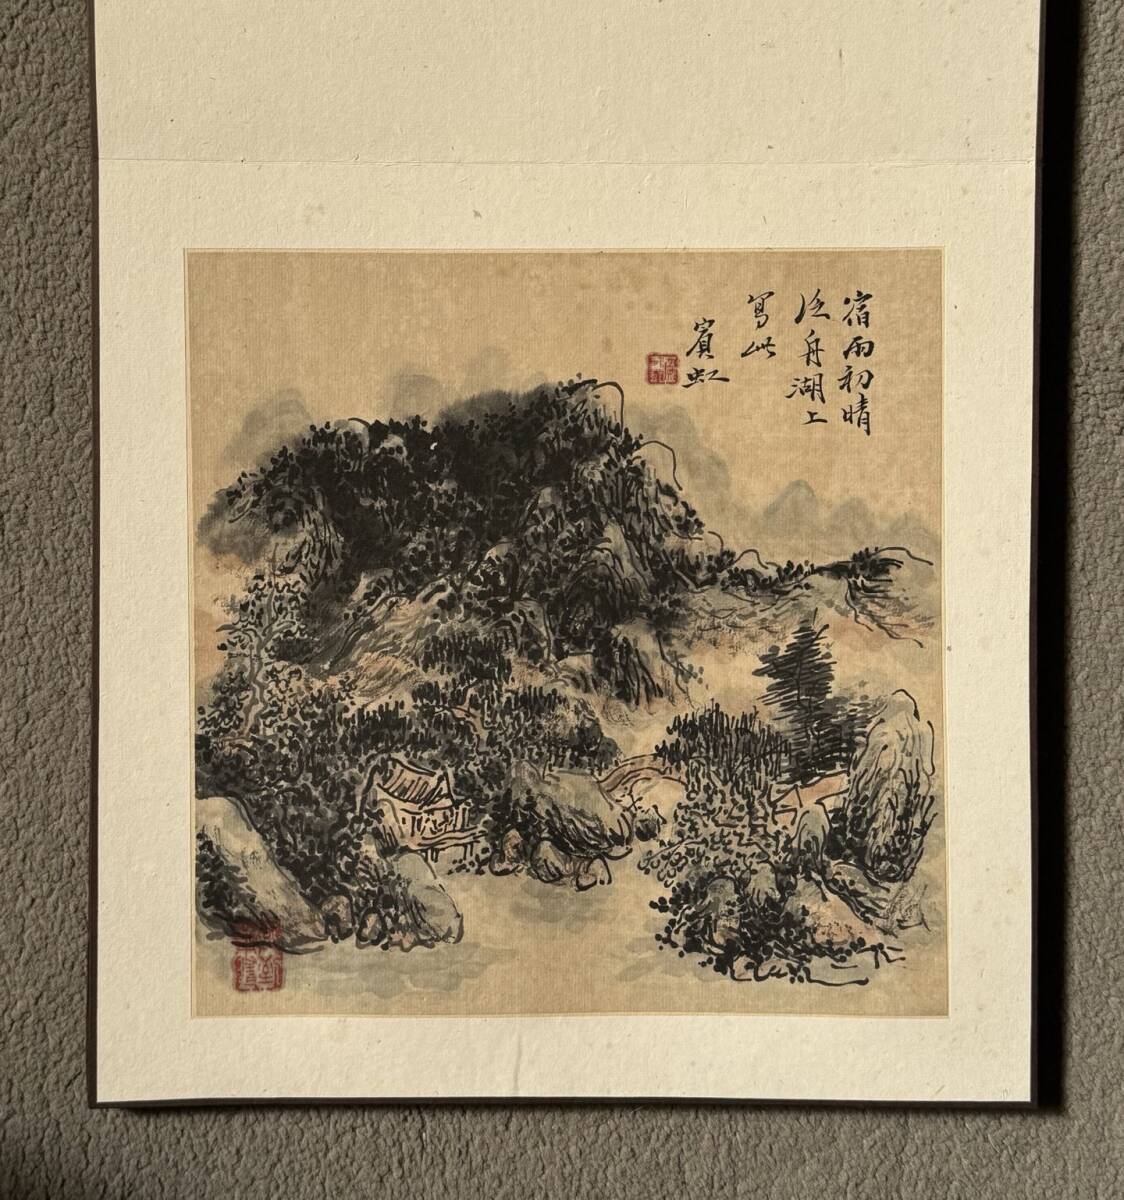 宿雨初晴
泛舟湖上
寫此
賓虹